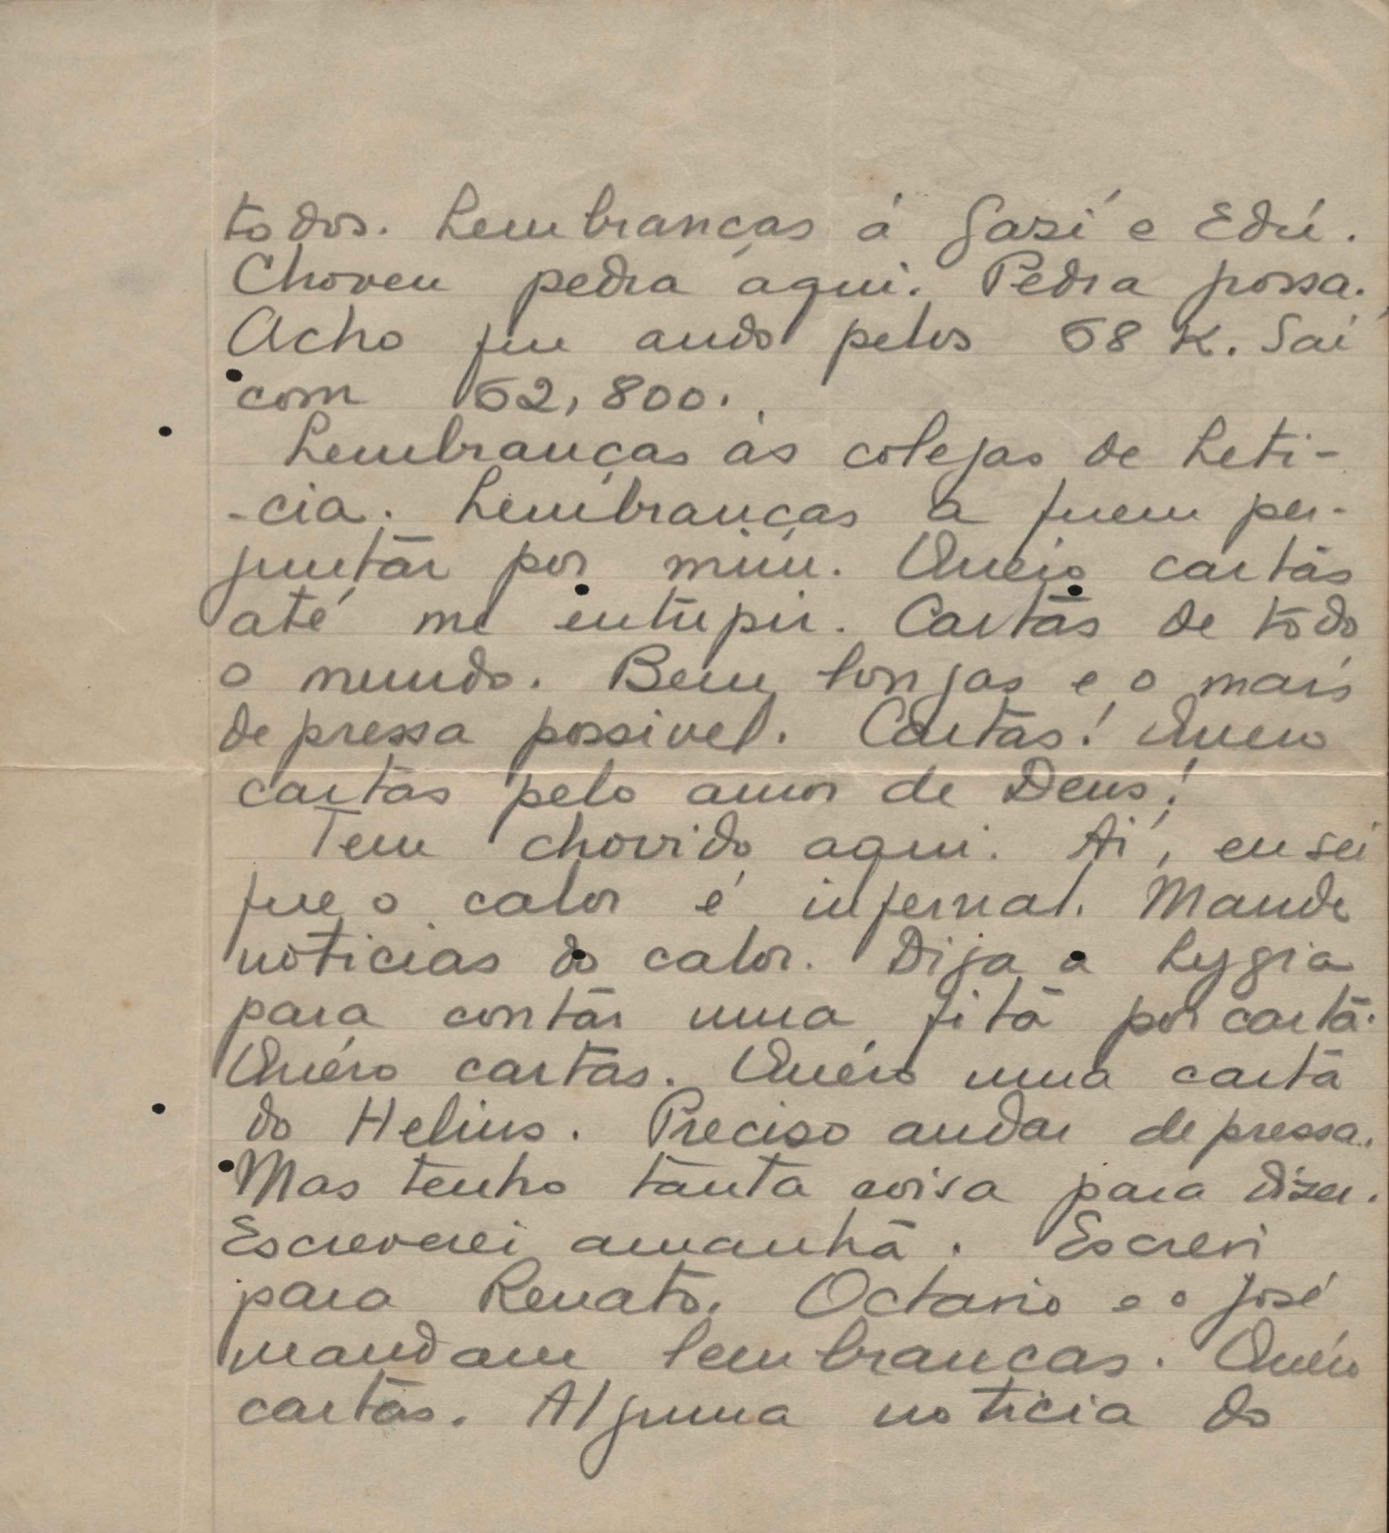 todos. Lembranças á Gasí e Edú.
Choveu pedra aqui. Pedra grossa.
Acho que ando pelos 68 K. Saí
com 62,800.
Lembranças ás colegas de Leti-
-cia. Lembranças a quem per-
guntar por mim. Quéro cartas
até me entupir. Cartas de todo
o mundo. Bem longas e o mais
depressa possivel. Cartas! Quero
cartas pelo amor de Deus!
Tem chovido aqui. Aí, eu sei
que o calor é infernal. Mande
noticias do calor. Diga a Lygia
para contar uma fita por carta.
Quéro cartas. Quéro uma carta
do Helius. Preciso andar depressa.
Mas tenho tanta coisa para dizer.
Escreverei amanhã. Escrevi
para Renato. Octavio e o José
mandam lembrancas. Quéro
cartas. Alguma noticia do